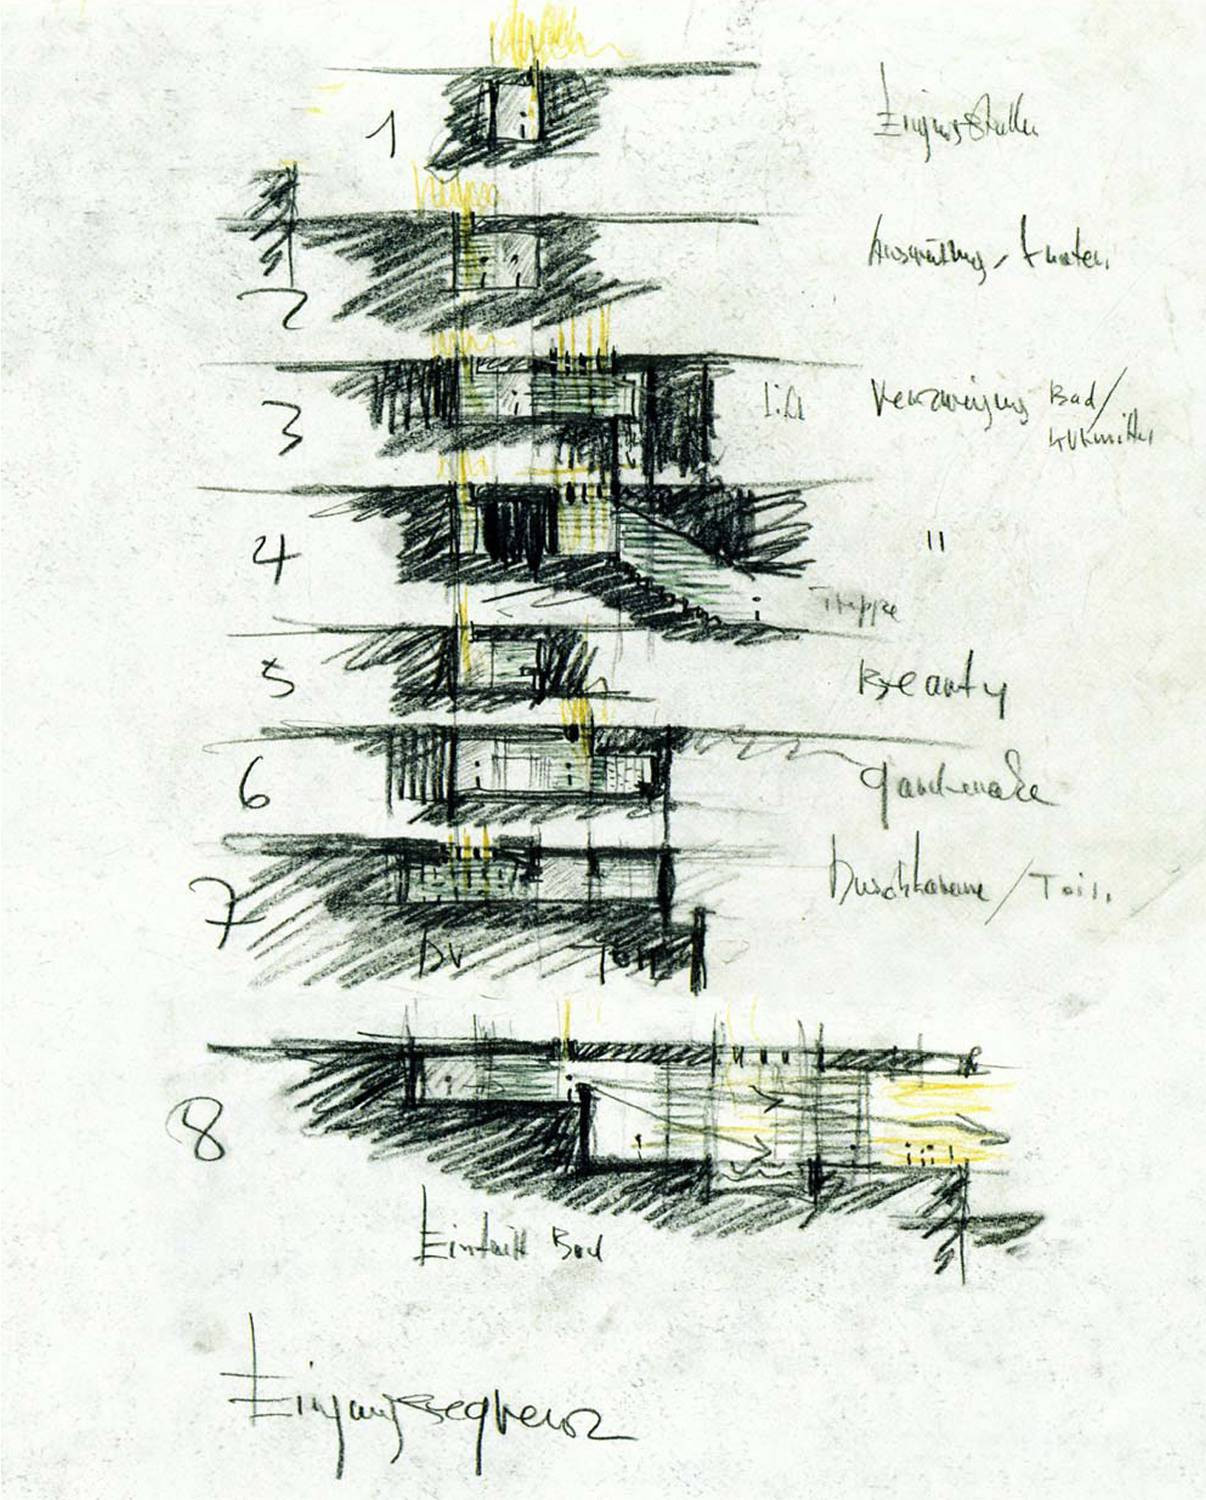 1 Eingangsstollen
2
3 Lift Verzweigung Bad/
4 "
Treppe
5 Beauty
6 Garderobe
7 Duschräume / Toil.
DU Toil
8
Eintritt Bad
Eingangssequenz